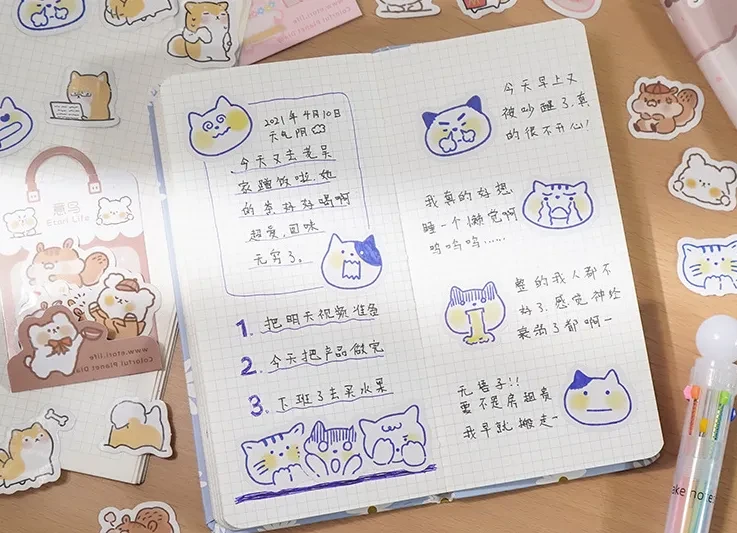 2021年4月10日
天气阴
今天又去老吴
家蹭饭啦,她
的茶好好喝啊
超爱,回味
无穷了。
1. 把明天视频准备
2. 今天把产品做完
3. 下班了去买水果
今天早上又
被吵醒了,真
的很不开心!
我真的好想
睡一个懒觉啊
呜呜呜……
整的我人都不
好了,感觉神经
衰弱了都啊一
无语子!!
要不是房租贵
我早就搬走一
意鸟
Eori Life
www.eori.life
Colorful Planet